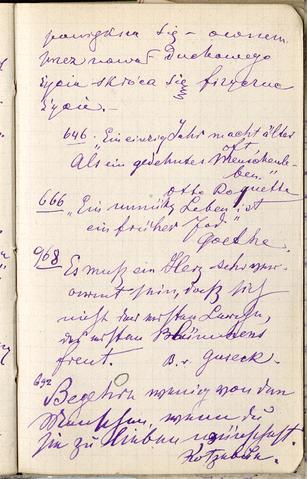 powiększa się – owszem
przez nawał Duchowego
życia skraca się fizyczne
życie. –
646. „Ein einzig Jahr macht älter oft
Als ein gedehntes Menschenle-
ben."
Otto Roquette
666 „Ein unnütz Leben ist
ein früher Tod"
Goethe.
968 Es muß ein Herz schon
sein, daß sich
nicht der ersten Lerche,
des ersten Blümchens
freut. B. v. Guseck.
692
Begehre wenig von den
Menschen, wenn du
sie zu lieben wünschest.
Kotzebue.